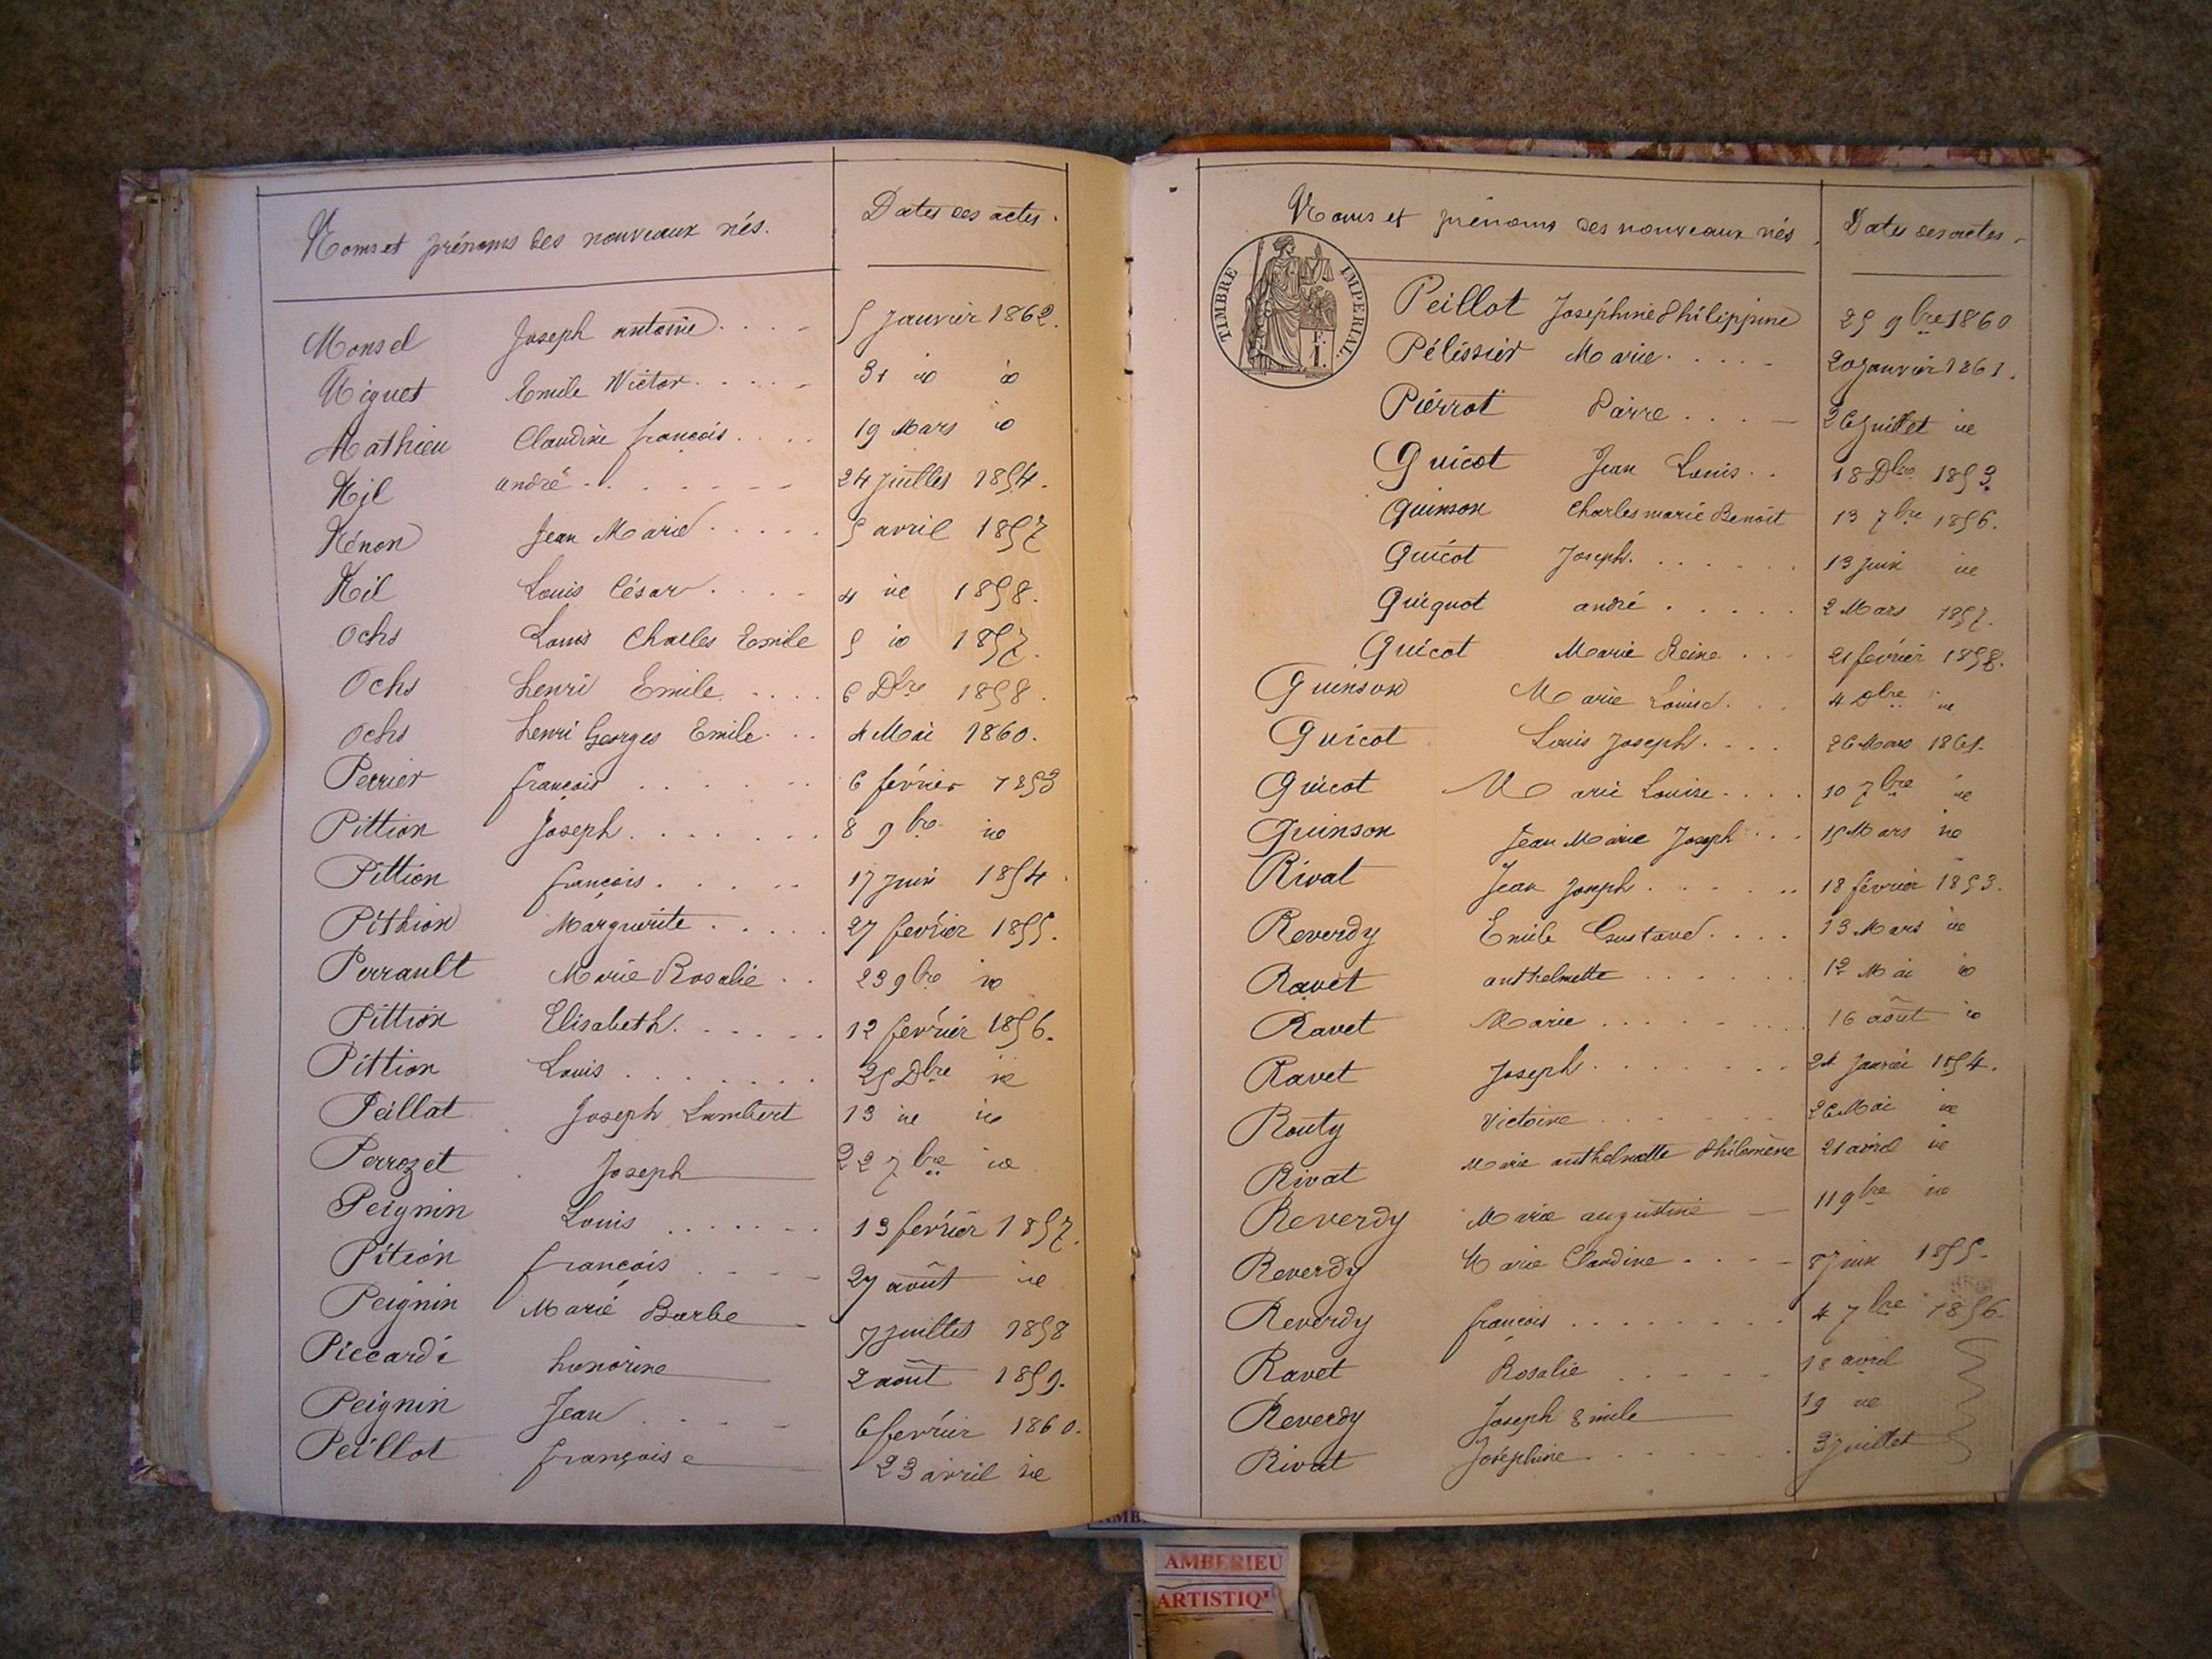 Noms et prénoms des nouveaux nés. Dates des actes.
Monsel Joseph antoine 5 Janvier 1862.
Miguet Emile Victor 31 id id
Mathieu Claudine françois 19 Mars id
Nil andré 24 juillet 1854.
Nénon Jean Marie 5 avril 1857
Nil Louis César 4 id 1858.
Ochs Louis Charles Emile 5 id 1857.
Ochs henri Emile 6 Dbre 1858.
Ochs henri Georges Emile 4 Mai 1860.
Perrier françois 6 février 1853
Pittion Joseph 8 9bre id
Pittion françois 17 Juin 1854.
Pithion Marguerite 27 février 1855.
Perrault Marie Rosalie 23 9bre id
Pittion Elisabeth 12 février 1856.
Pittion Louis 25 Dbre id
Peillat Joseph Lambert 13 id id
Perrozet Joseph 22 7bre id
Peignin Louis 13 février 1857.
Pition françois 27 août id
Peignin Marie Barbe 7 juillet 1858
Piccardi honorine 2 août 1859.
Peignin Jean 6 février 1860.
Peillot françoise 23 avril id
Noms et prénoms des nouveaux nés. Dates des actes.
TIMBRE IMPERIAL.
Peillot Joséphine Philippine 25 9bre 1860
Pélissier Marie 20 janvier 1861.
Pierrot Pierre 26 juillet id
Guicot Jean Louis 18 Dbre 1853
Guinson Charles marie Benoît 13 7bre 1856.
Guicot Joseph 13 juin id
Guignot andré 2 Mars 1857.
Guicot Marie Reine 21 février 1858.
Guinson Marie Louise 4 Dbre id
Guicot Louis Joseph 26 Mars 1861.
Guicot Marie Louise 10 7bre id
Guinson Jean Marie Joseph 15 Mars id
Rivat Jean Joseph 18 février 1853.
Reverdy Emile Gustave 13 Mars id
Ravet anthelmette 12 Mai id
Ravet Marie 16 août id
Ravet Joseph 24 Janvier 1854.
Routy Victoire 26 Mai id
Rivat Marie anthelmette Philomène 21 avril id
Reverdy Marie augustine 11 9bre id
Reverdy Marie Claudine 8 Juin 1855.
Reverdy françois 4 7bre 1856.
Ravet Rosalie 18 avril
Reverdy Joseph Emile 19 id
Rivat Joséphine 3 Juillet
AMBERIEU
ARTISTIQ